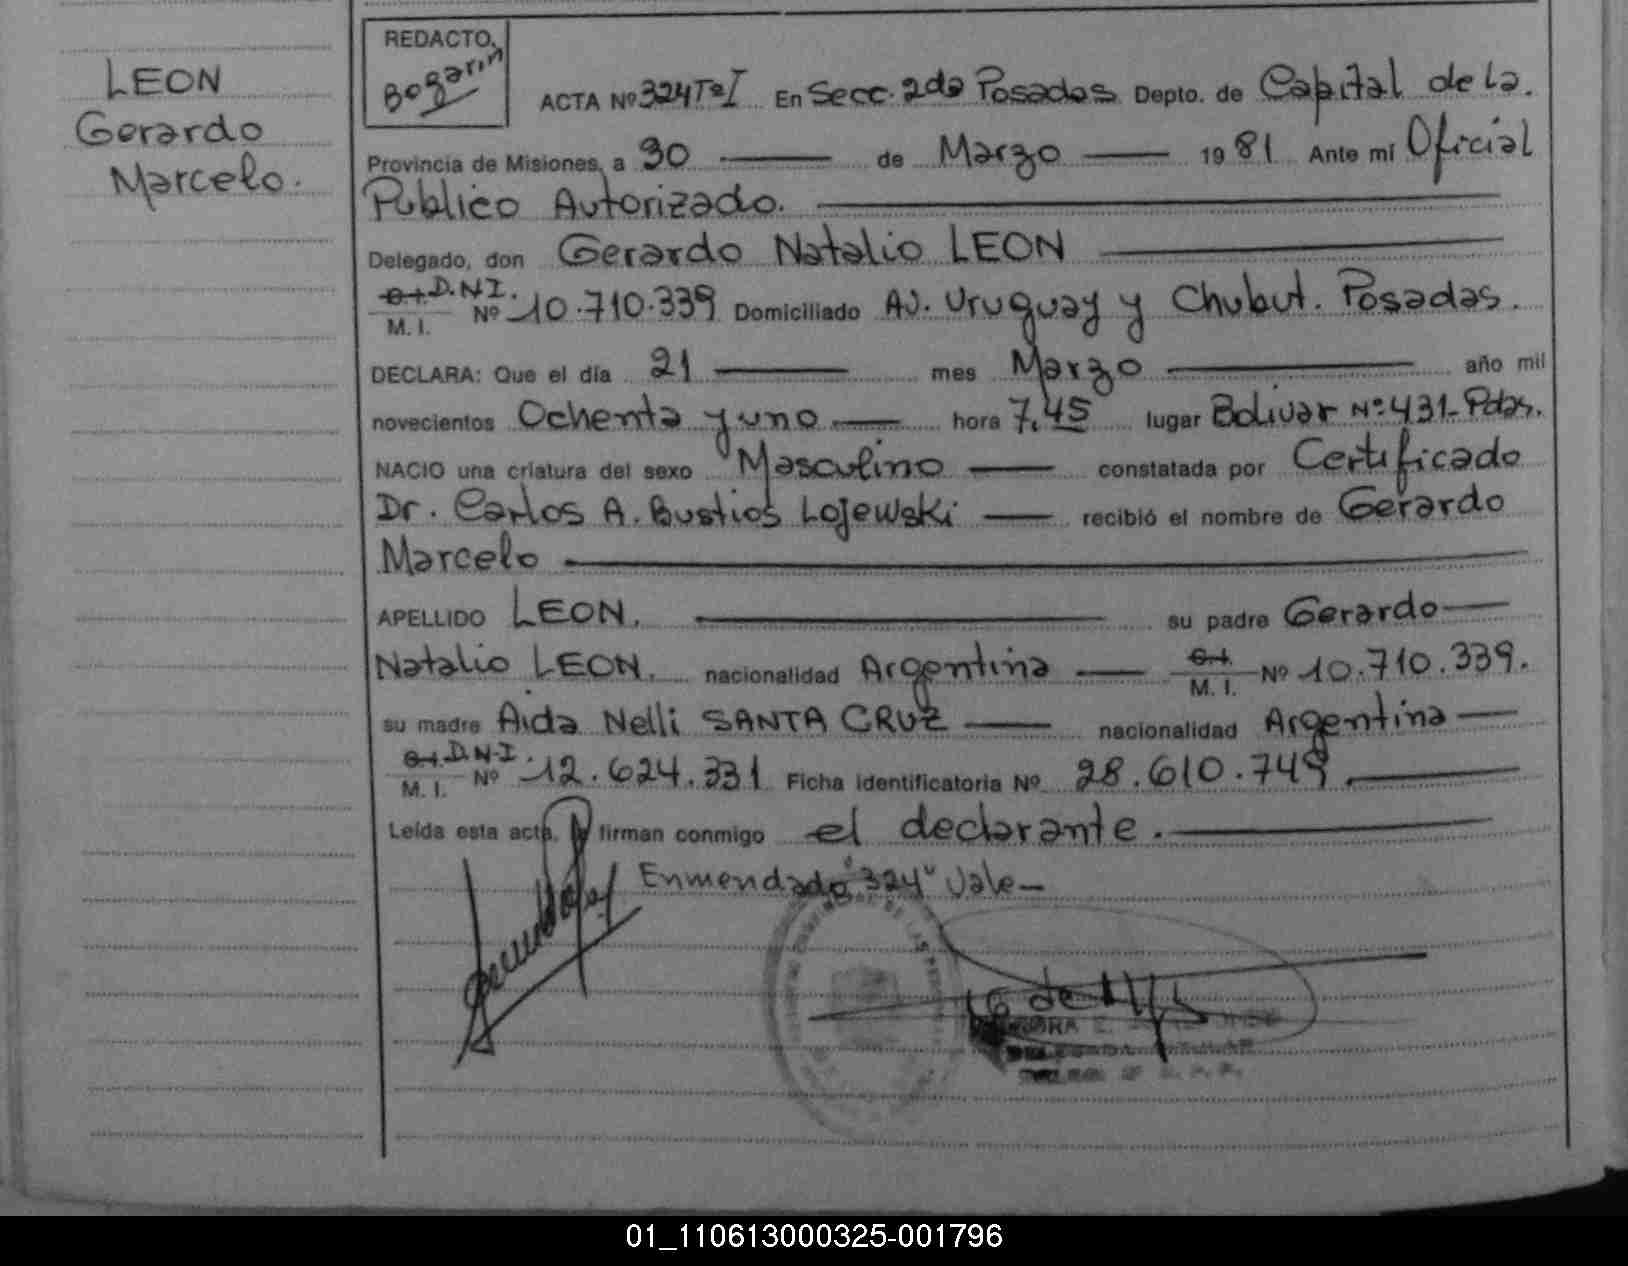 LEON
Gerardo
Marcelo.
REDACTO,
Bogarin
ACTA Nº 324 Tº I En Secc. 2da Posadas Depto. de Capital de la.
Provincia de Misiones, a 30 de Marzo 1981 Ante mí Oficial
Publico Autorizado.
Delegado, don Gerardo Natalio LEON
D.N.I.
M. I. Nº 10.710.339 Domiciliado Av. Uruguay y Chubut. Posadas.
DECLARA: Que el día 21 mes Marzo año mil
novecientos Ochenta y uno hora 7,45 lugar Bolivar Nº 431- Pdas.
NACIO una criatura del sexo Masculino constatada por Certificado
Dr. Carlos A. Bustios Lojewski recibió el nombre de Gerardo
Marcelo
APELLIDO LEON. su padre Gerardo
Natalio LEON. nacionalidad Argentina M. I. Nº 10.710.339.
su madre Aida Nelli SANTA CRUZ nacionalidad Argentina
D.N.I.
M. I. Nº 12.624.331 Ficha identificatoria Nº 28.610.749.
Leída esta acta, firman conmigo el declarante.
Enmendado "324" Vale-
01_110613000325-001796